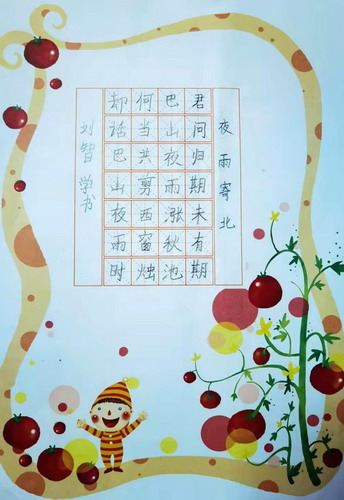 夜雨寄北
君问归期未有期
巴山夜雨涨秋池
何当共剪西窗烛
却话巴山夜雨时
刘智 学书